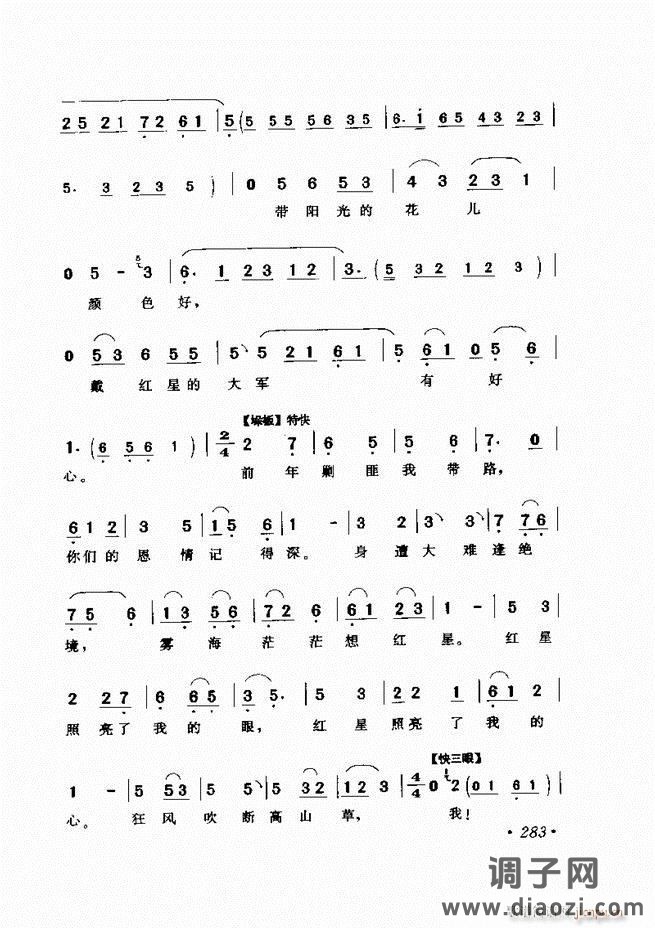 25 21 72 61 5 (5 55 56 35 6. 1 65 43 23
5. 3 23 5) 0 56 53 4 3 23 1
带阳光的花儿
0 5 - 3 6. 1 23 12 3. (5 32 12 3)
颜色好，
0 53 6 55 5 5 21 61 5 61 05 6
戴红星的大军有好
【垛板】特快
1. (6 56 1) 2/4 2 7 6 5 5 6 7. 0
心。前年剿匪我带路，
61 2 3 5 15 6 1 - 3 2 3 3 7 76
你们的恩情记得深。身遭大难逢绝
75 6 13 56 72 6 61 23 1 - 5 3
境，雾海茫茫想红星。红星
2 27 6 65 35. 5 3 22 1 61 2
照亮了我的眼，红星照亮了我的
【快三眼】
1 - 5 53 5 5 5 32 12 3 4/4 0 2 (01 61)
心。狂风吹断高山草，我！
·283·
调子网
www.diaozi.com